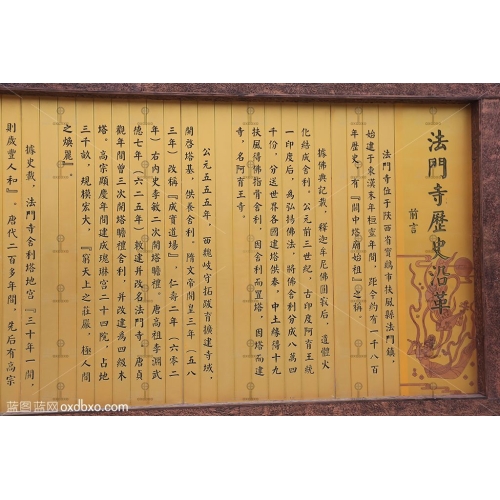 法門寺歷史沿革
前言
法門寺位于陝西省寶鷄市扶風縣法門鎮,
始建于東漢末年桓靈年間,距今約有一千八百
年歷史,有『關中塔廟始祖』之稱。
據佛典記載,釋迦牟尼佛圓寂后,遺體火
化結成舍利。公元前三世紀,古印度阿育王統
一印度后,為弘揚佛法,將佛舍利分成八萬四
千份,分送世界各國建塔供奉。中土緣得十九
份,扶風得佛指骨舍利,因舍利而置塔,因塔而建
寺,名阿育王寺。
公元五五五年,西魏岐守拓跋育擴建寺域,
開啓塔基,供養舍利。隋文帝開皇三年(五八
三年)改稱『成實道場』,仁壽二年(六零二
年)右內史李敏二次開塔瞻禮。唐高祖李淵武
德七年(六二五年)敕建并改名法門寺。唐貞
觀年間曾三次開塔瞻禮舍利,并改建為四級木
塔。高宗顯慶年間建成瑰琳宮二十四院,占地
三千畝,規模宏大,『窮天上之莊嚴,極人間
之煥麗』。
據史載,法門寺舍利塔地宮『三十年一開,
則歲豐人和』。唐代二百多年間,先后有高宗
蓝图蓝网oxdbxo.com